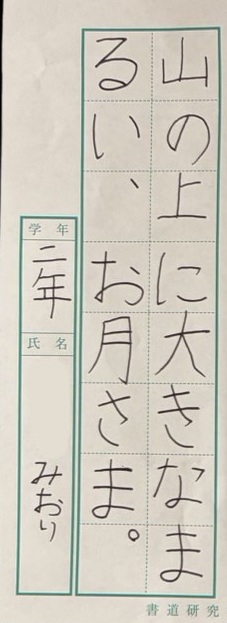 山の上に大きなま
るい、お月さま。
学年
二年
氏名
みおり
書道研究